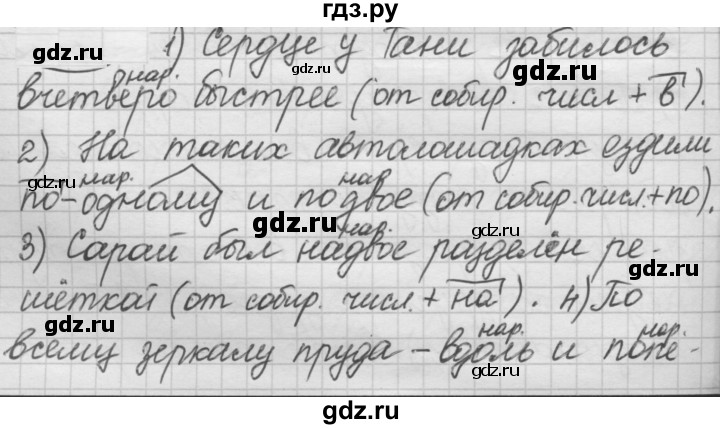 гдз.ру
1) Сердце у Тани забилось
нар.
вчетверо быстрее (от собир. числ + в).
2) На таких автолошадках ездили
нар. нар.
по-одному и по двое (от собир. числ. + по).
нар.
3) Сарай был надвое разделён ре-
шёткой (от собир. числ. + на). 4) По
нар. нар.
всему зеркалу пруда – вдоль и попе-
gdz.ru
gdz.ru
gdz.ru
gdz.ru
gdz.ru
gdz.ru
gdz.ru
gdz.ru
gdz.ru
gdz.ru
gdz.ru
gdz.ru
gdz.ru
gdz.ru